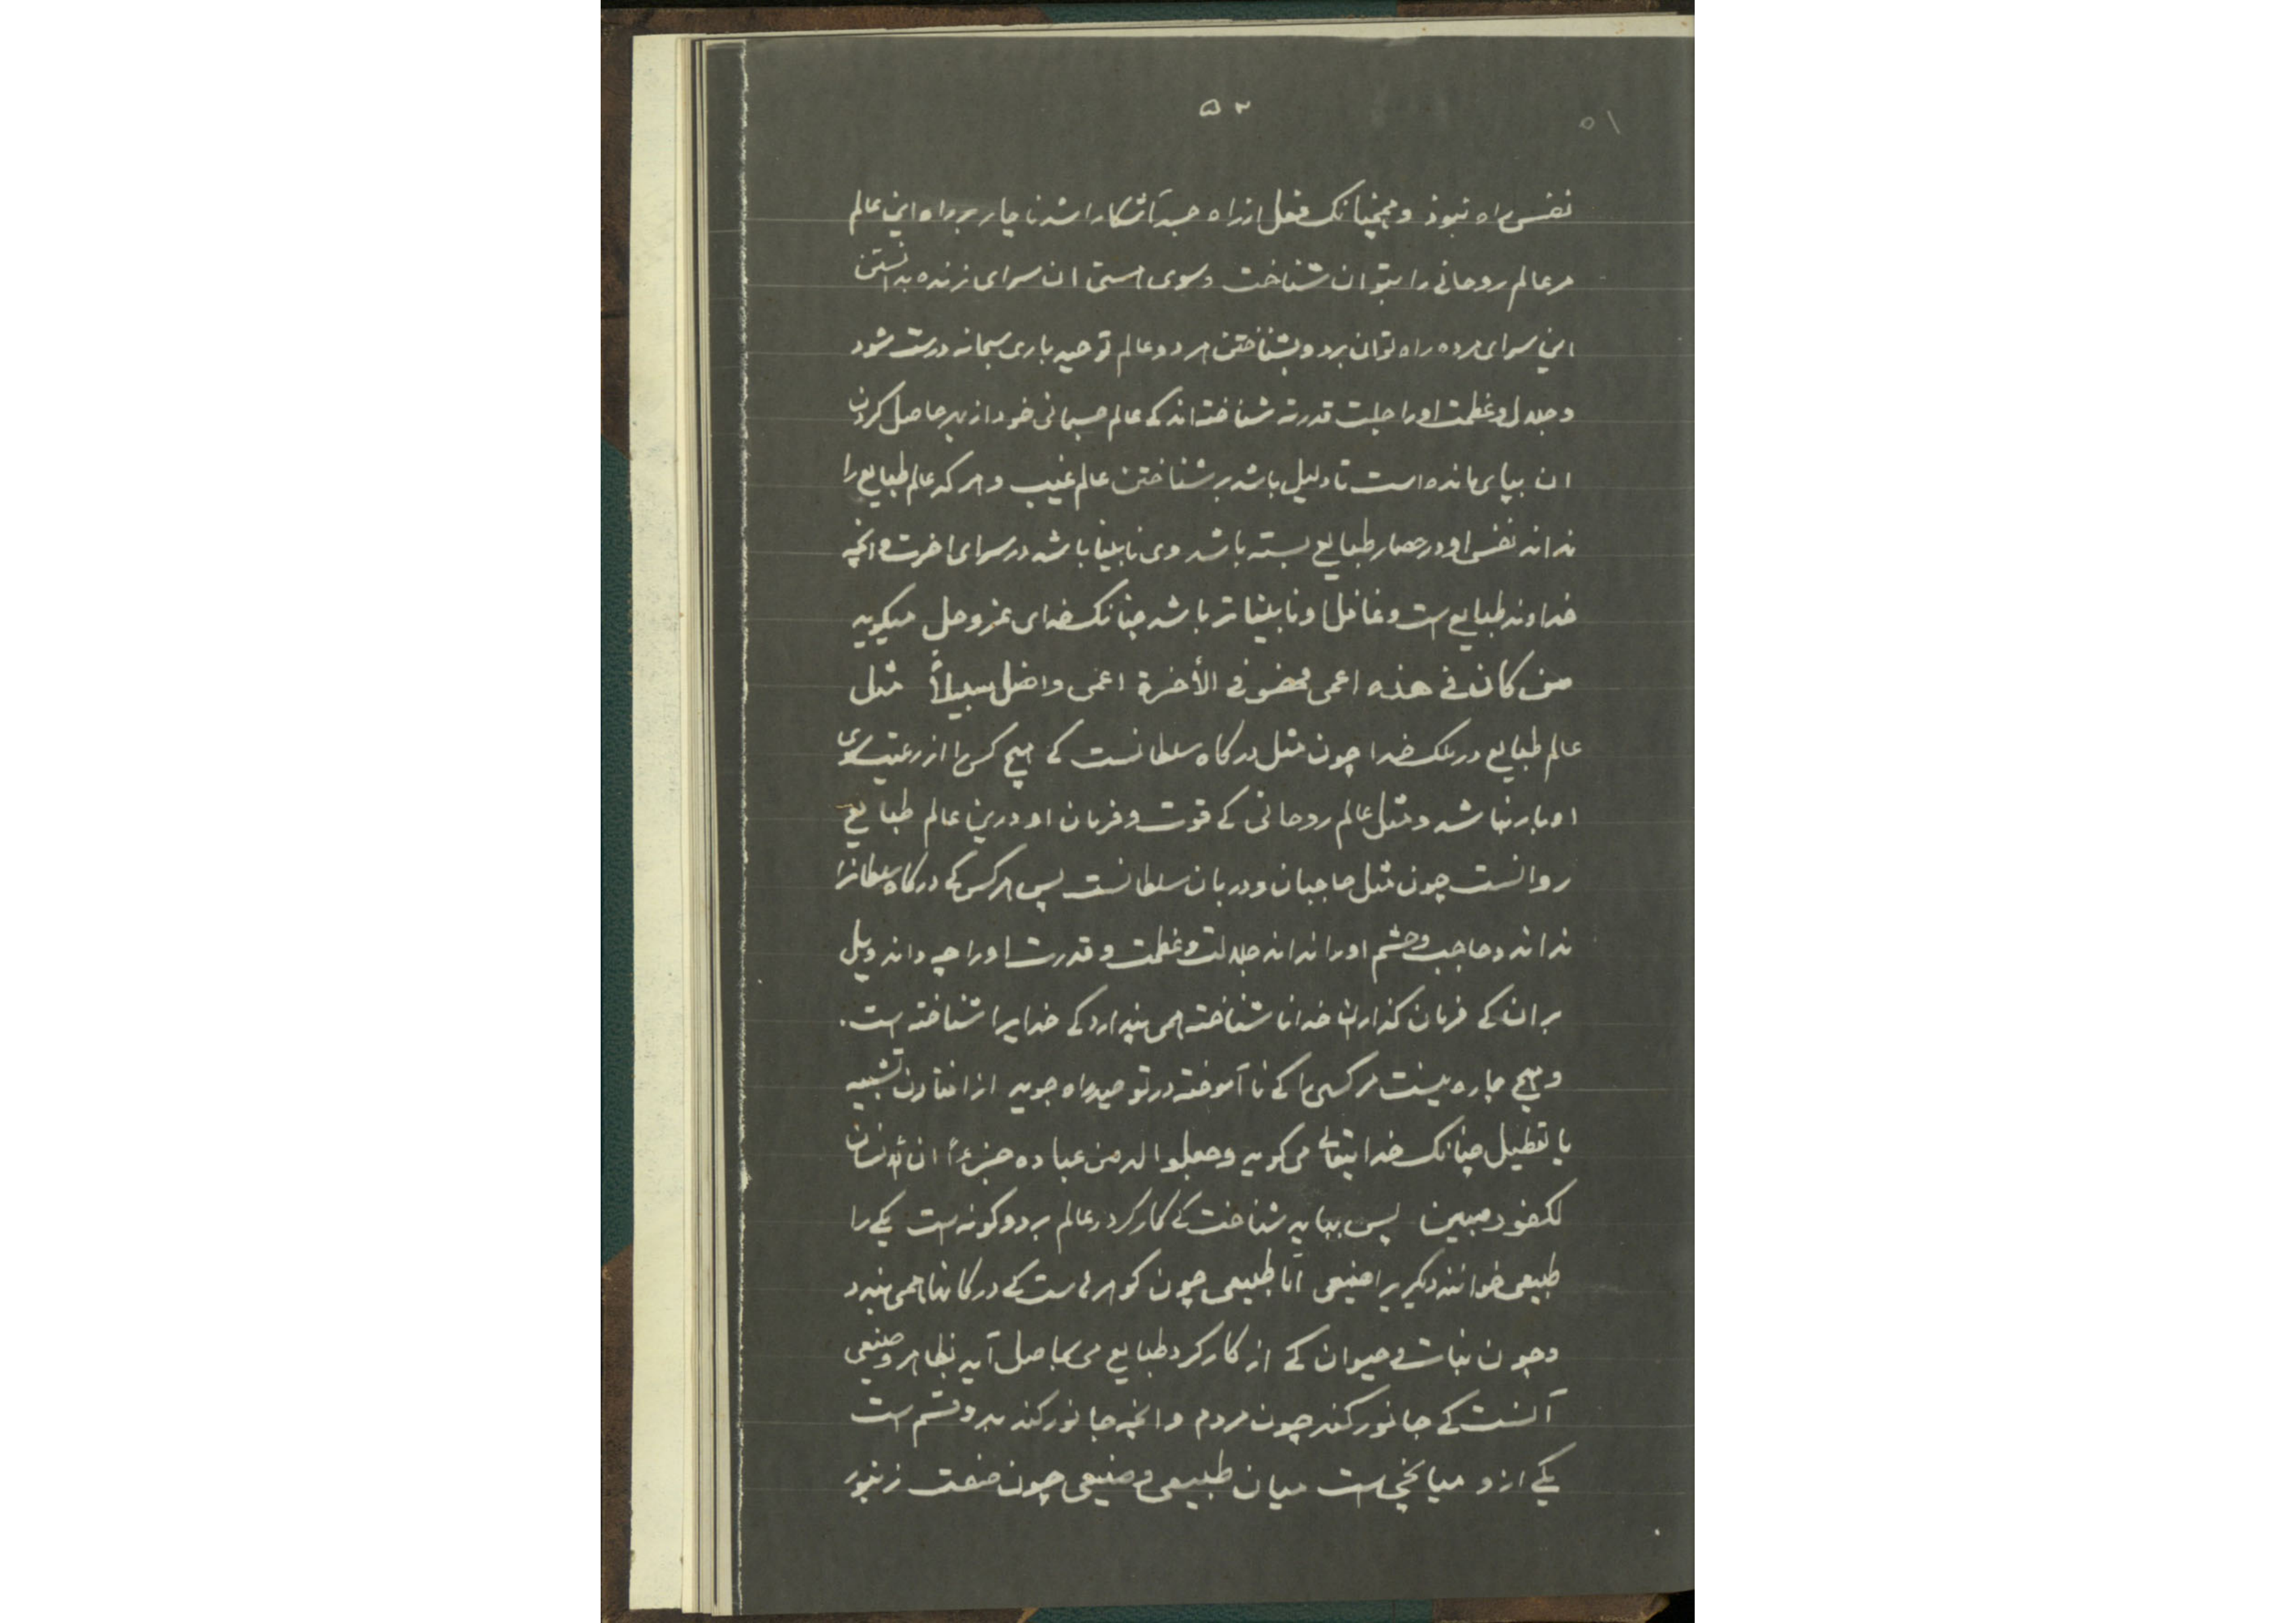 ۵۲
۵۱
نفس راه نبوذ و همچنانک فعل از راه جسد آشکارا شد ناچار بر راه این عالم
مر عالم روحانی را بتوان شناخت و سوی هستی ان سرای زنده بدانستن
این سرای مرده راه توان برد و بشناختن هر دو عالم توحید باری سبحانه درست شود
و جلال و عظمت او را جلت قدرته شناخته اند کی عالم جسمانی خود از بهر حاصل کردن
ان بپای مانده است تا دلیل باشد بر شناختن عالم غیب و هر که عالم طبایع را
نداند نفس او در حصار طبایع بسته باشد وی نابینا باشد در سرای اخرت و انچه
خداوند طبایع است و غافل او نابیناتر باشد چنانک خدای عز و جل میکوید
من کان فی هذه اعمی فهو فی الأخرة اعمی و اضل سبیلاً مثل
عالم طبایع در ملک خدا چون مثل درکاه سلطانست کی هیچ کس را از رعیت سوی
او بار نباشد و مثل عالم روحانی کی قوت و فرمان او درین عالم طبایع
روانست چون مثل حاجبان و دربان سلطانست پس هر کس کی درکاه سلطانرا
نداند و حاجب و حشم او را نداند جلالت و عظمت و قدرت او را چه داند ویل
بر ان کی فرمان کذاران خدا نا شناخته همی پندارد کی خدایرا شناخته است.
و هیچ چاره نیست مر کسی را کی نا آموخته در توحید راه جوید از افتادن تشبیه
یا تعطیل چنانک خدایتعالی می کوید وجعلوا له من عباده جزءاً ان الانسان
لکفور مبین پس بباید شناخت کی کارکرد در عالم بر دو کونه است یکی را
طبیعی خوانند دیکریرا صنیعی اما طبیعی چون کوهرهاست کی در کانها همی بندد
و چون نبات و حیوان کی از کارکرد طبایع می حاصل آید بظاهر و صنیعی
آنست کی جانور کند چون مردم و انچه جانور کند بدو قسم است
یکی ازو میانجی است میان طبیعی و صنیعی چون صنعت زنبور